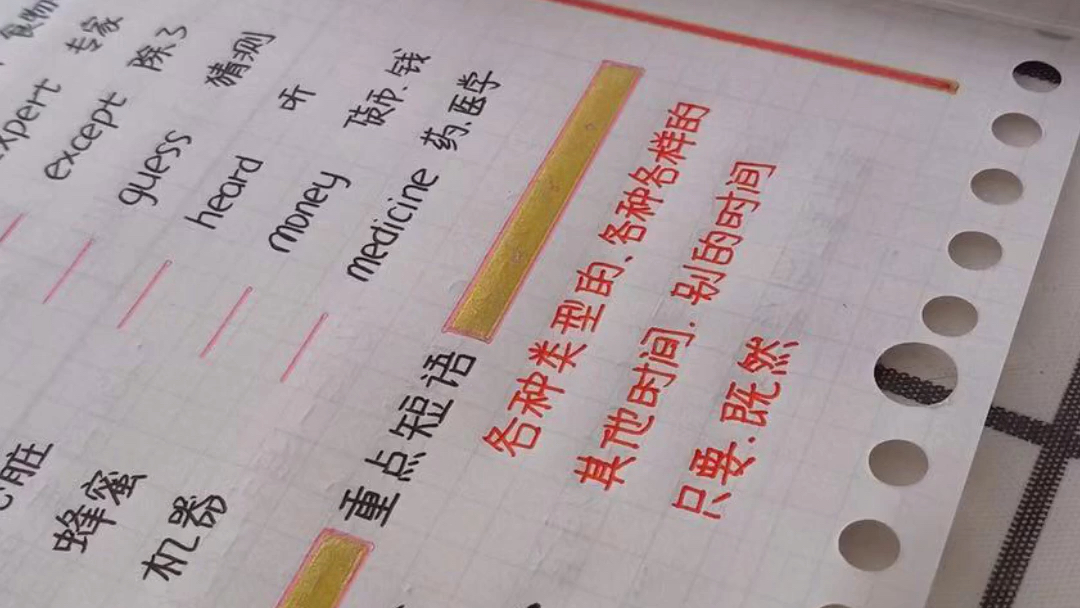 食物
expert 专家
except 除了
guess 猜测
heard 听
money 硬币.钱
medicine 药.医学
心脏
蜂蜜
机器
重点短语
各种类型的、各种各样的
其他时间.别的时间
只要.既然